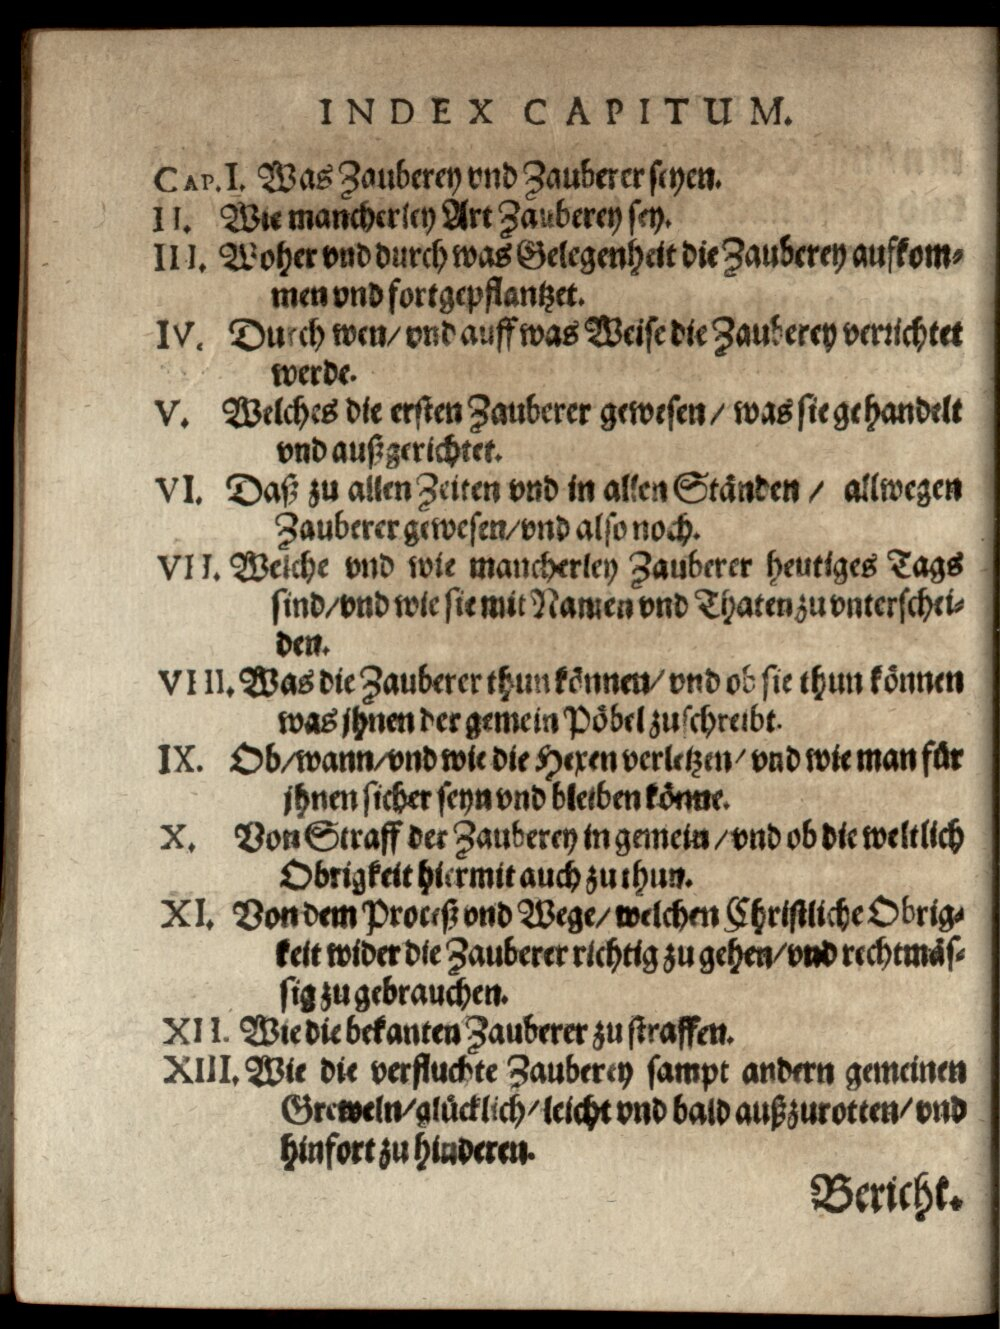 INDEX CAPITUM.
CAP. I. Was Zauberey vnd Zauberer seyen.
II. Wie mancherley Art Zauberey sey.
III. Woher vnd durch was Gelegenheit die Zauberey auffkom-
men vnd fortgepflantzet.
IV. Durch wen/ vnd auff was Weise die Zauberey verrichtet
werde.
V. Welches die ersten Zauberer gewesen/ was sie gehandelt
vnd außgerichtet.
VI. Daß zu allen Zeiten vnd in allen Ständen / allwegen
Zauberer gewesen/vnd also noch.
VII. Welche vnd wie mancherley Zauberer heutiges Tags
sind/vnd wie sie mit Namen vnd Thaten zu vnterschei-
den.
VIII. Was die Zauberer thun können/ vnd ob sie thun können
was jhnen der gemein Pöbel zuschreibt.
IX. Ob/wann/vnd wie die Hexen verletzen/ vnd wie man für
jhnen sicher seyn vnd bleiben könne.
X. Von Straff der Zauberey in gemein /vnd ob die weltlich
Obrigkeit hiermit auch zu thun.
XI. Von dem Proceß vnd Wege/ welchen Christliche Obrig-
keit wider die Zauberer richtig zu gehen/vnd rechtmäs-
sig zu gebrauchen.
XII. Wie die bekanten Zauberer zu straffen.
XIII. Wie die verfluchte Zauberey sampt andern gemeinen
Greweln/glücklich/leicht vnd bald außzurotten/ vnd
hinfort zu hinderen.
Bericht.